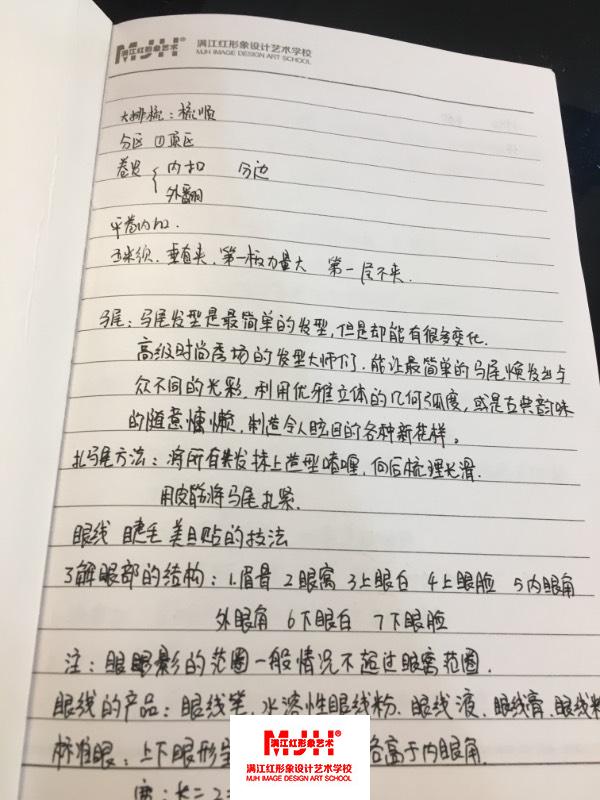 MJH®
满江红形象艺术
满江红形象设计艺术学校
MJH IMAGE DESIGN ART SCHOOL
大排梳：梳顺
分区 ①顶区
卷发 { 内扣 分边
外翻
平卷内扣.
玉米须. 垂直夹. 第一板力量大 第一层不夹.
马尾：马尾发型是最简单的发型, 但是却能有很多变化.
高级时尚秀场的发型大师们. 能让最简单的马尾焕发出与
众不同的光彩. 利用优雅立体的几何弧度, 或是古典韵味
的随意慵懒, 制造令人眩目的各种新花样。
扎马尾方法：将所有头发抹上造型啫喱, 向后梳理光滑.
用皮筋将马尾扎紧.
眼线 睫毛 美目贴的技法
了解眼部的结构：1.眉骨 2眼窝 3上眼白 4上眼脸 5内眼角
外眼角 6下眼白 7下眼脸
注：眼影的范围一般情况不超过眼窝范围.
眼线的产品：眼线笔. 水溶性眼线粉. 眼线液. 眼线膏. 眼线
标准眼：上下眼形 高于内眼角.
MJH®
满江红形象艺术
满江红形象设计艺术学校
MJH IMAGE DESIGN ART SCHOOL